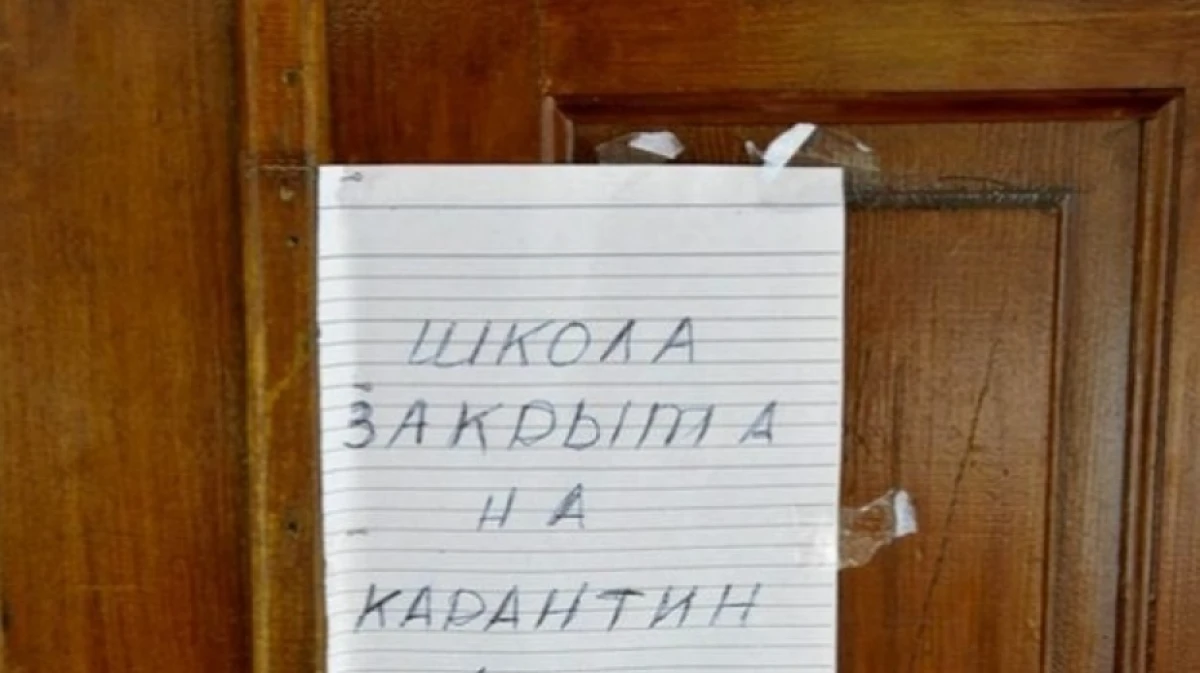 ШКОЛА
ЗАКРЫТА
НА
КАРАНТИН